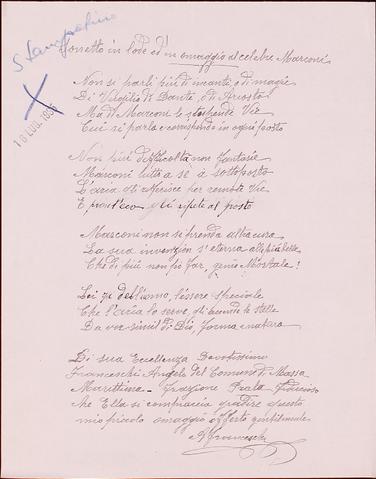 Stampatino
18 LUG. 1935
Sonetto in lode ed in omaggio al celebre Marconi
Non si parli più di incanti, e di magie
Di Virgilio di Dante, e di Ariosto
Ma di Marconi le stupende Vie
Cui si parla e corrisponde in ogni posto
Non più difficoltà non fantasie
Marconi tutto a sè à sottoposto
L'aria gli ferisce per remote Vie
E l'eco gli ripete al posto
Marconi non si prenda altra cura
La sua invenzion s'eterna alle più belle
Che di più non po far, genio Mortale!
Lei dell'uomo, l'essere speciale
Che l'aria lo serve, gli le stelle
Da voi simil di Dio, forma e natura
Di sua Eccellenza Devotissimo
Franceschi Angelo del Comune di Massa
Marittima - Frazione Prata
che Ella si compiaccia gradire questo
mio piccolo omaggio offerto gentilmente
A Franceschi